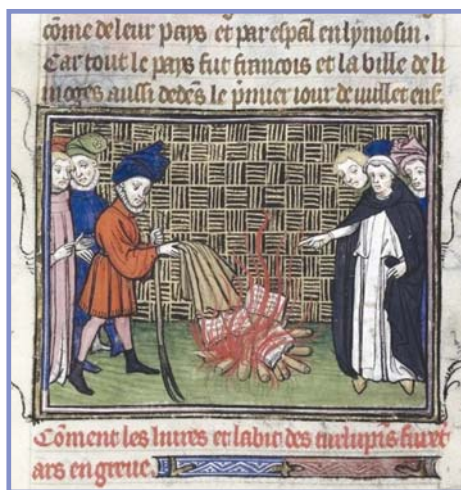 cōme de leur pays et par espāl en lymosin.
Car tout le pays fut francois et la ville de li
moges aussi dedēs le p̄mier iour de iuillet ens
Cōment les liures et labit des turlupis furēt
ars en greue.